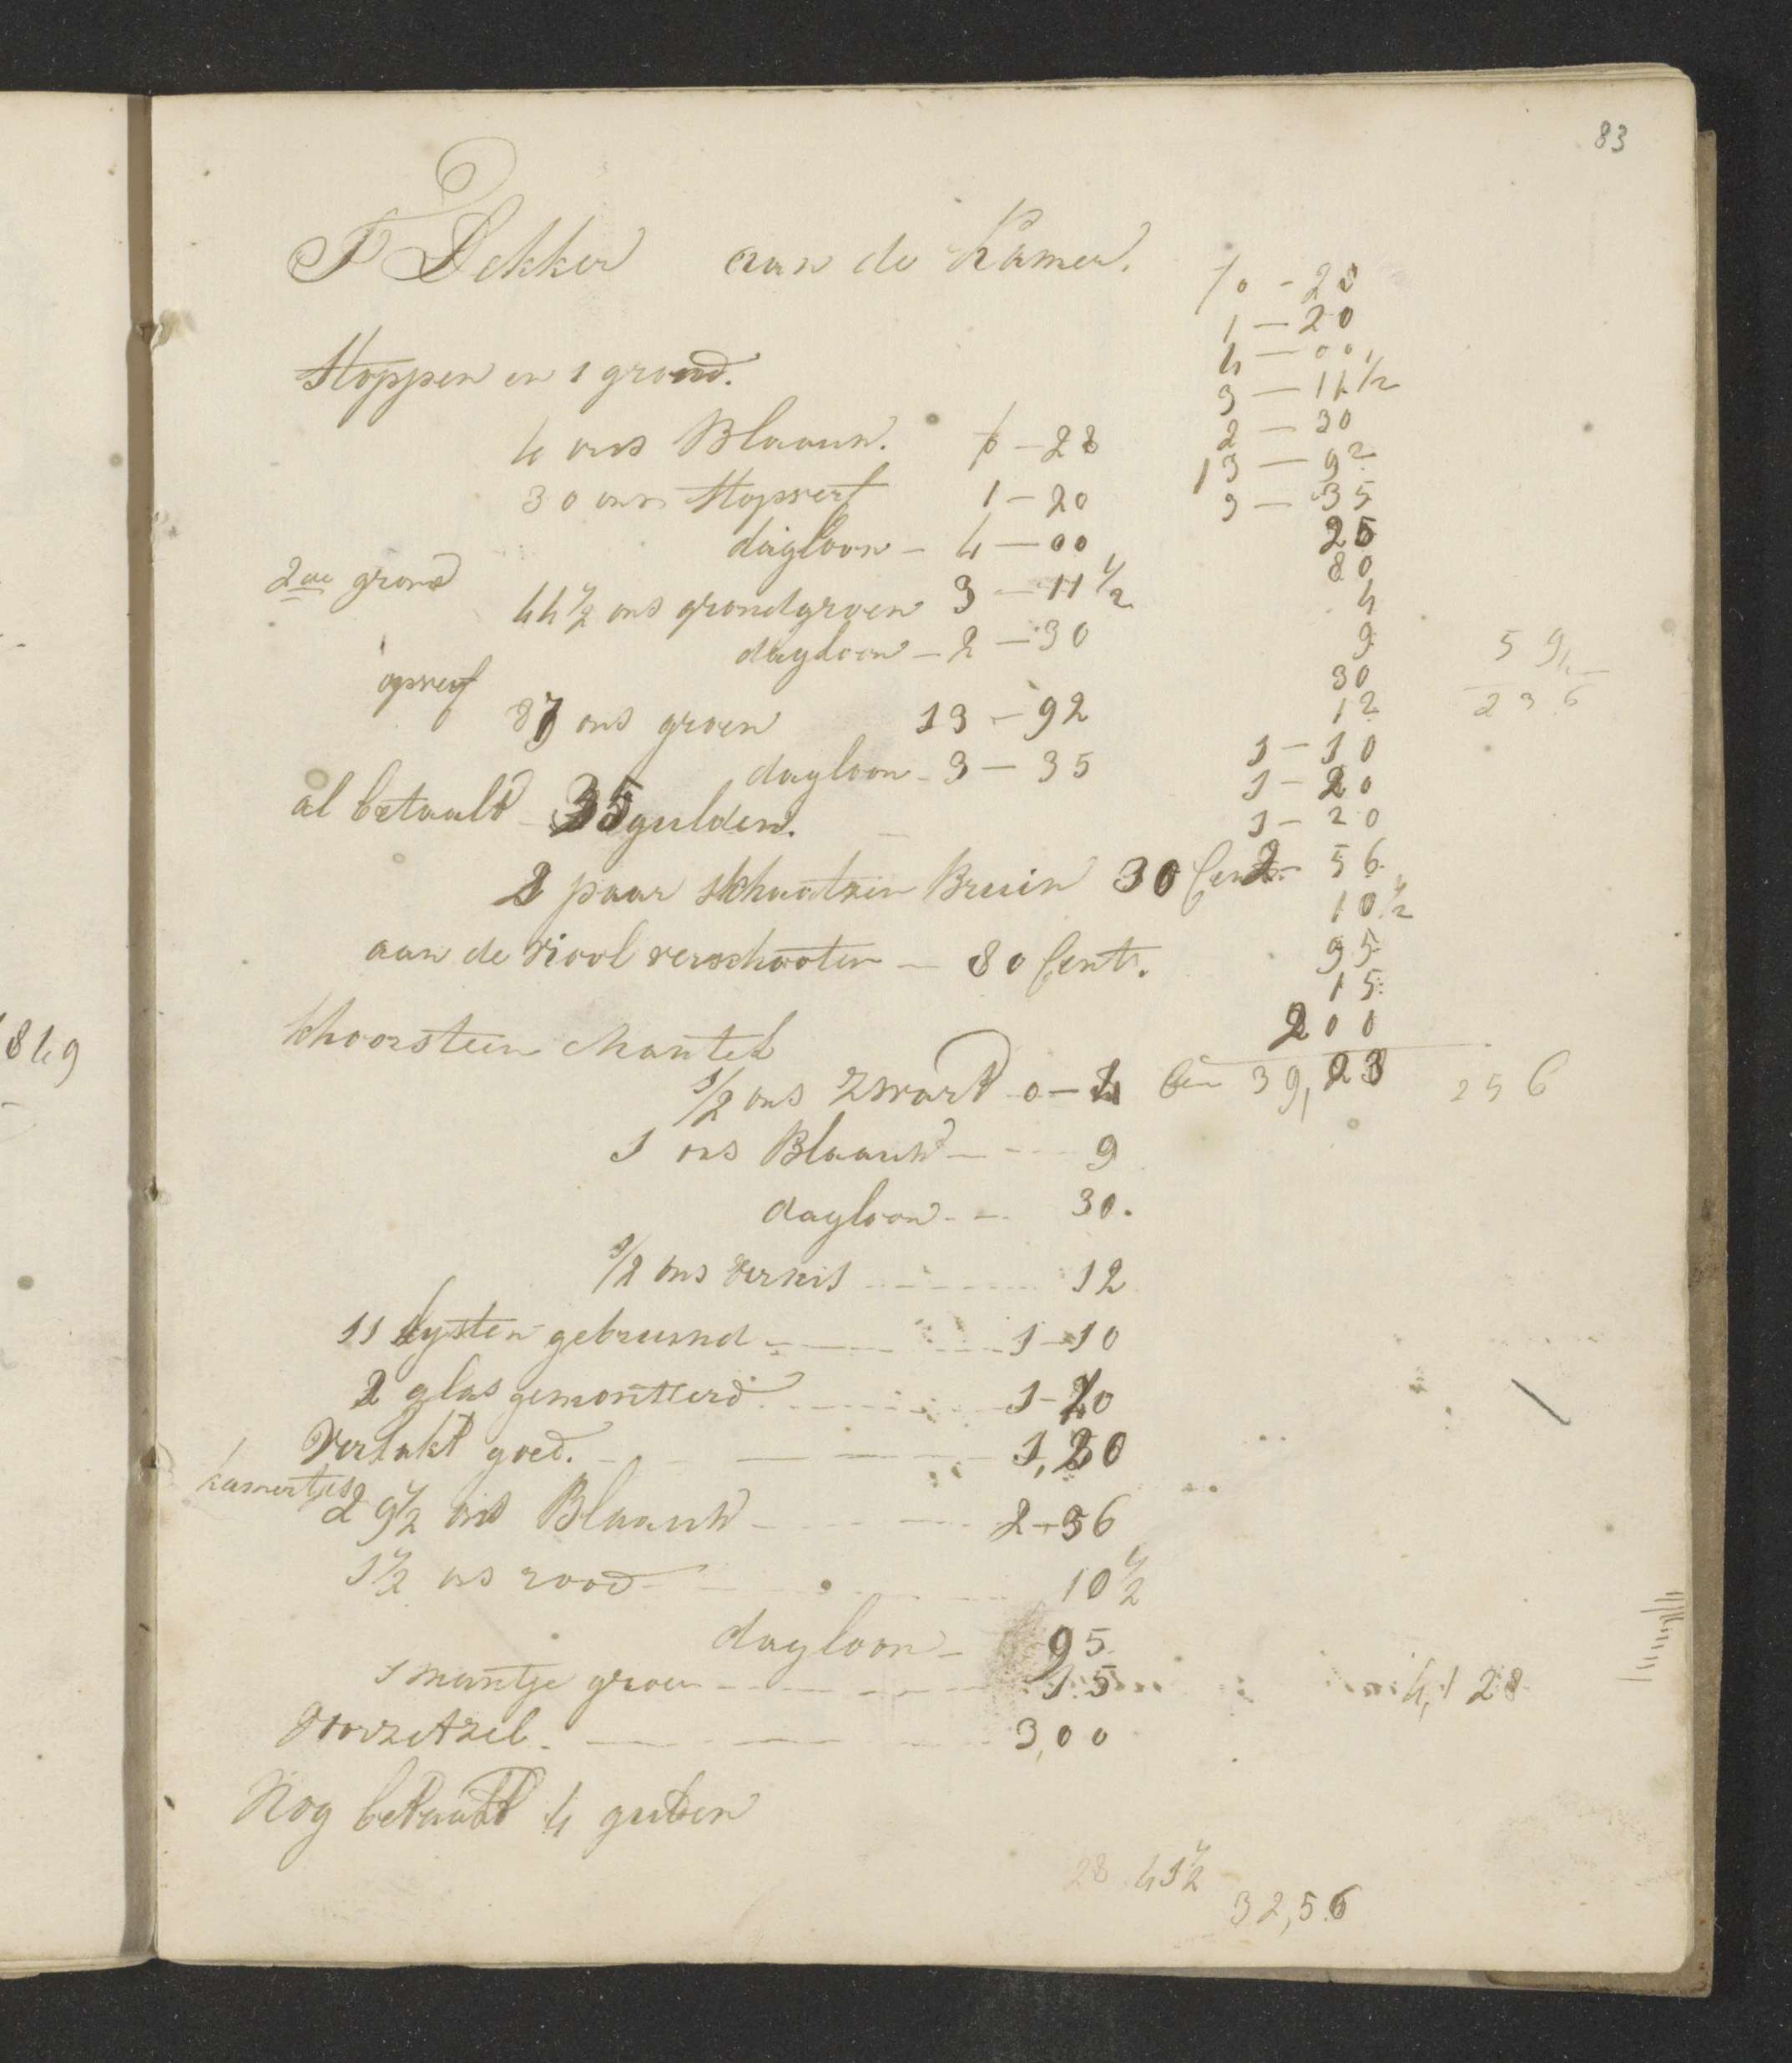 83
P Dekker aan de Kamer.
Stoppen en 1 grond.
4 ons Blaauw. 0 - 28
30 ons Stopverf 1 - 20
dagloon - 4 - 00
2de grond
44 1/2 ons grondgroen 3 - 11 1/2
dagloon - 2 - 30
opverf
87 ons groen 13 - 92
dagloon - 3 - 35
al betaald - 35 gulden.
2 paar schaatzen Bruin 30 Cent
aan de riool verschooten - 80 Cent.
Schoorsteen Mantel
1/2 ons Zwart 0 - 4
1 ons Blaauw - - - 9
dagloon - - 30.
1/2 ons vernis 12
11 Lysten gebruind - 1 - 10
2 glas gemontterd 1 - 20
Verlakt goed. 1,20
kamertjes
29 1/2 ons Blaauw - 2 - 56
1 1/2 ons rood 10 1/2
dagloon - 95
1 mantje groen 15
Voorzetzel. 3,00
Nog betaald 4 gulden
/0 - 28
1 - 20
4 - 00
3 - 11 1/2
2 - 30
13 - 92
3 - 35
80
4
9
30
12
1 - 10
1 - 20
1 - 20
2 - 56
10 1/2
95
15
200
39,23
236
256
4,128
28 41 1/2
32,56
849